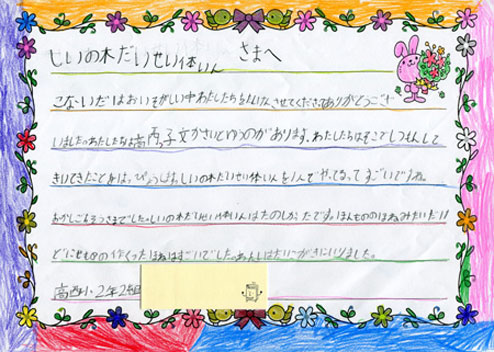 しいの木だいせい体いん さまへ
こないだはおいそがしい中わたしたちをたんけんさせてくださってありがとうござ
いました。わたしたちは高西っ子文かさいとゆうのがあります。わたしたちはそこでしつもんして
きいてきたことをはっぴょうします。しいの木だいせい体いんを1人でやってるってすごいですね。
おかしごちそうさまでした。しいの木だいせい体いんはたのしかったです。ほんもののほねみたいだけ
どにせもの作くったほねはすごいでした。あんしんはだいにがきにいりました。
高西小2年2組